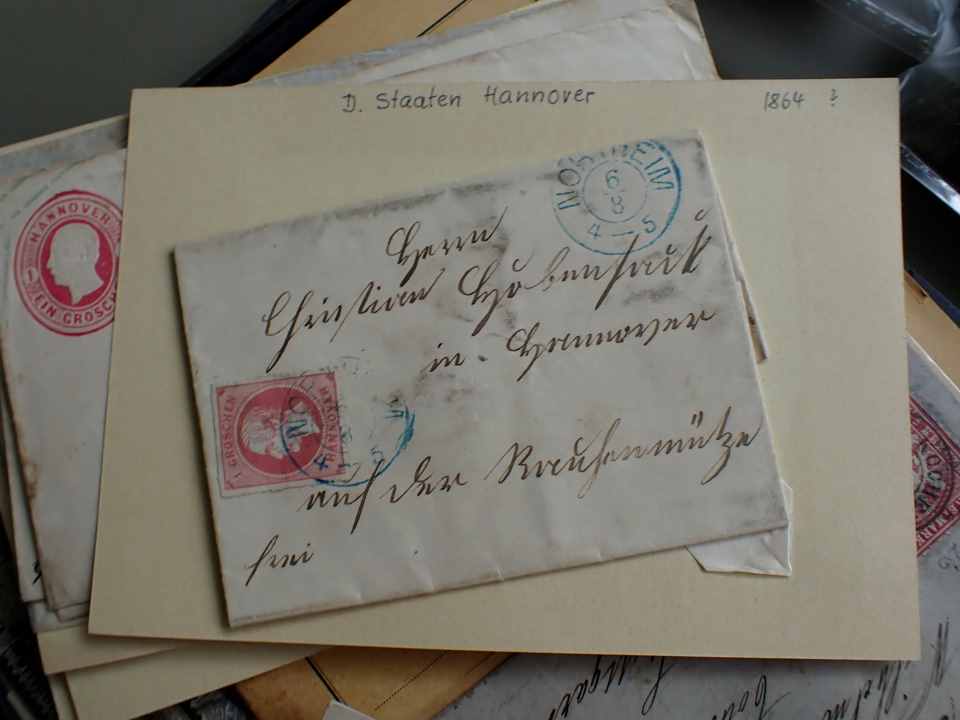 D. Staaten Hannover 1864 ?
HANNOVER
1 EIN GROSCH
NORTHEIM
6
8
4 — 5
Herrn
Christian
in Hannover
1 GROSCHEN
HANNOVER
4
5
auf der Rauhenmütze
frei